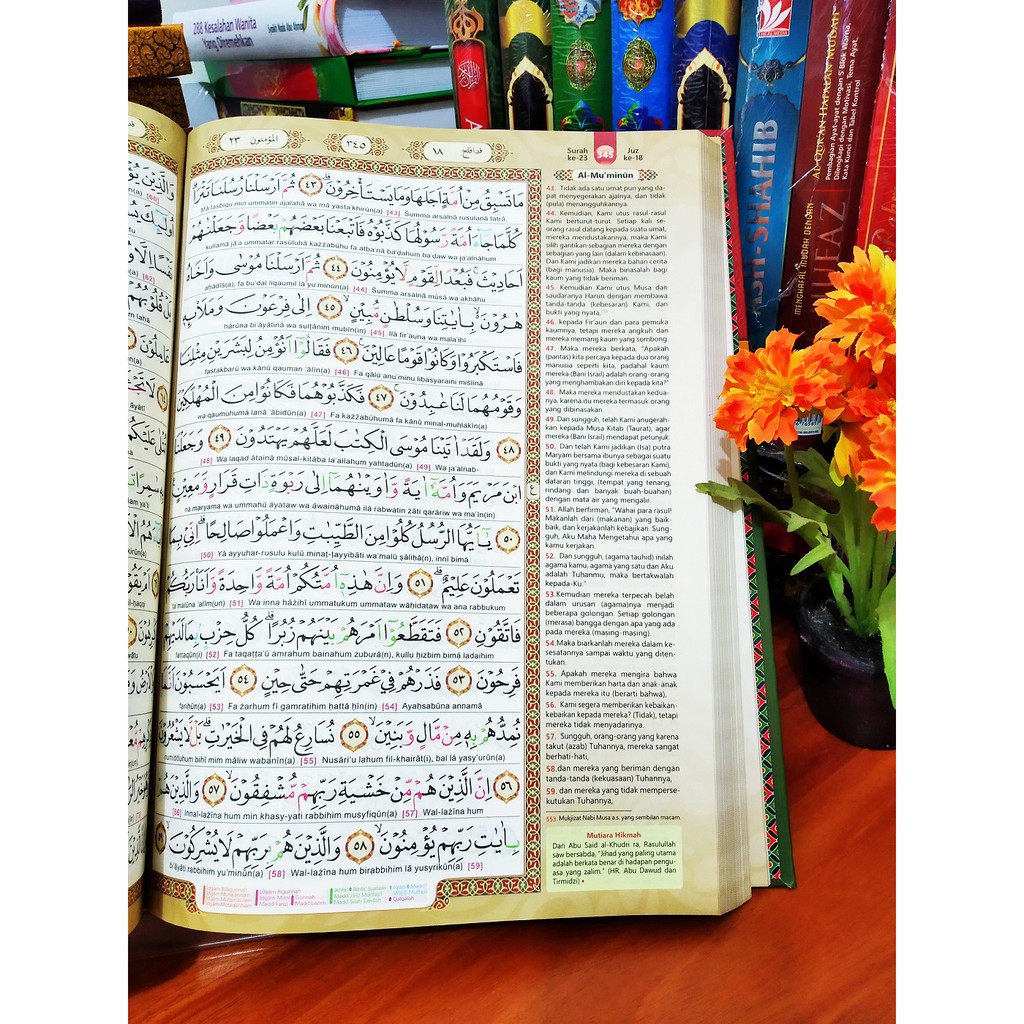 288 Kesalahan Wanita
Yang Diremehkan
ASH-SHAHIB
AL-QUR'AN HAFALAN MUDAH
Pembagian Ayat-ayat dengan 5 Blok Warna,
Dilengkapi dengan Motivasi, Tema Ayat,
Kata Kunci dan Tabel Kontrol
MENGHAFAL MUDAH DENGAN
المؤمنون ٢٣
٣٤٥
قد افلح ١٨
Surah ke-23
345
Juz ke-18
مَا تَسْبِقُ مِنْ اُمَّةٍ اَجَلَهَا وَمَا يَسْتَأْخِرُوْنَ ۗ ٤٣ ثُمَّ اَرْسَلْنَا رُسُلَنَا تَتْرَاۗ
Mā tasbiqu min ummatin ajalahā wa mā yasta'khirūn(a) [43] Ṡumma arsalnā rusulanā tatrā,
كُلَّمَا جَاۤءَ اُمَّةً رَّسُوْلُهَا كَذَّبُوْهُ فَاَتْبَعْنَا بَعْضَهُمْ بَعْضًا وَّجَعَلْنٰهُمْ
kullamā jā'a ummatar rasūluhā każżabūhu fa atba'nā ba'ḍahum ba'ḍaw wa ja'alnāhum
اَحَادِيْثَۚ فَبُعْدًا لِّقَوْمٍ لَّا يُؤْمِنُوْنَ ٤٤ ثُمَّ اَرْسَلْنَا مُوْسٰى وَاَخَاهُ
ahādīṡ(a), fa bu'dal liqaumil lā yu'minūn(a) [44] Ṡumma arsalnā mūsā wa akhāhu
هٰرُوْنَ ۙ بِاٰيٰتِنَا وَسُلْطٰنٍ مُّبِيْنٍۙ ٤٥ اِلٰى فِرْعَوْنَ وَمَلَا۟ىِٕهٖ
hārūna bi'āyātinā wa sulṭānim mubīn(in) [45] Ilā fir'auna wa mala'ihī
فَاسْتَكْبَرُوْا وَكَانُوْا قَوْمًا عَالِيْنَ ۚ ٤٦ فَقَالُوْٓا اَنُؤْمِنُ لِبَشَرَيْنِ مِثْلِنَا
fastakbarū wa kānū qauman 'ālīn(a) [46] Fa qālū anu'minu libasyaraini miṡlinā
وَقَوْمُهُمَا لَنَا عٰبِدُوْنَ ۚ ٤٧ فَكَذَّبُوْهُمَا فَكَانُوْا مِنَ الْمُهْلَكِيْنَ
wa qaumuhumā lanā 'ābidūn(a) [47] Fa każżabūhumā fa kānū minal-muhlakīn(a)
٤٨ وَلَقَدْ اٰتَيْنَا مُوْسَى الْكِتٰبَ لَعَلَّهُمْ يَهْتَدُوْنَ ٤٩ وَجَعَلْنَا
[48] Wa laqad ātainā mūsal-kitāba la'allahum yahtadūn(a) [49] Wa ja'alnab-
ابْنَ مَرْيَمَ وَاُمَّهٗٓ اٰيَةً وَّاٰوَيْنٰهُمَآ اِلٰى رَبْوَةٍ ذَاتِ قَرَارٍ وَّمَعِيْنٍ
na maryama wa ummahū āyataw wa āwaināhumā ilā rabwatin żāti qarāriw wa ma'īn(in)
٥٠ يٰٓاَيُّهَا الرُّسُلُ كُلُوْا مِنَ الطَّيِّبٰتِ وَاعْمَلُوْا صَالِحًاۗ اِنِّيْ بِمَا
[50] Yā ayyuhar-rusulu kulū minaṭ-ṭayyibāti wa'malū ṣāliḥā(n), innī bimā
تَعْمَلُوْنَ عَلِيْمٌ ۗ ٥١ وَاِنَّ هٰذِهٖٓ اُمَّتُكُمْ اُمَّةً وَّاحِدَةً وَّاَنَا رَبُّكُمْ
ta'malūna 'alīm(un) [51] Wa inna hāżihī ummatukum ummataw wāḥidataw wa ana rabbukum
فَاتَّقُوْنِ ٥٢ فَتَقَطَّعُوْٓا اَمْرَهُمْ بَيْنَهُمْ زُبُرًاۗ كُلُّ حِزْبٍۢ بِمَا لَدَيْهِمْ
fattaqūn(i) [52] Fa taqaṭṭa'ū amrahum bainahum zuburā(n), kullu ḥizbim bimā ladaihim
فَرِحُوْنَ ٥٣ فَذَرْهُمْ فِيْ غَمْرَتِهِمْ حَتّٰى حِيْنٍ ٥٤ اَيَحْسَبُوْنَ اَنَّمَا
fariḥūn(a) [53] Fa żarhum fī gamratihim ḥattā ḥīn(in) [54] Ayaḥsabūna annamā
نُمِدُّهُمْ بِهٖ مِنْ مَّالٍ وَّبَنِيْنَ ۙ ٥٥ نُسَارِعُ لَهُمْ فِى الْخَيْرٰتِۗ بَلْ لَّا يَشْعُرُوْنَ
numidduhum bihī mim māliw wabanīn(a) [55] Nusāri'u lahum fil-khairāt(i), bal lā yasy'urūn(a)
٥٦ اِنَّ الَّذِيْنَ هُمْ مِّنْ خَشْيَةِ رَبِّهِمْ مُّشْفِقُوْنَ ۙ ٥٧ وَالَّذِيْنَ هُمْ
[56] Innal-lażīna hum min khasy-yati rabbihim musyfiqūn(a) [57] Wal-lażīna hum
بِاٰيٰتِ رَبِّهِمْ يُؤْمِنُوْنَ ۙ ٥٨ وَالَّذِيْنَ هُمْ بِرَبِّهِمْ لَا يُشْرِكُوْنَ ۙ
bi'āyāti rabbihim yu'minūn(a) [58] Wal-lażīna hum birabbihim lā yusyrikūn(a) [59]
Al-Mu'minūn
43. Tidak ada satu umat pun yang da-
pat menyegerakan ajalnya, dan tidak
(pula) menangguhkannya.
44. Kemudian, Kami utus rasul-rasul
Kami berturut-turut. Setiap kali se-
orang rasul datang kepada suatu umat,
mereka mendustakannya, maka Kami
silih gantikan sebagian mereka dengan
sebagian yang lain (dalam kebinasaan).
Dan Kami jadikan mereka bahan cerita
(bagi manusia). Maka binasalah bagi
kaum yang tidak beriman.
45. Kemudian Kami utus Musa dan
saudaranya Harun dengan membawa
tanda-tanda (kebesaran) Kami, dan
bukti yang nyata,
46. kepada Fir'aun dan para pemuka
kaumnya, tetapi mereka angkuh dan
mereka memang kaum yang sombong.
47. Maka mereka berkata, "Apakah
(pantas) kita percaya kepada dua orang
manusia seperti kita, padahal kaum
mereka (Bani Israil) adalah orang-orang
yang menghambakan diri kepada kita?"
48. Maka mereka mendustakan kedua-
nya, karena itu mereka termasuk orang
yang dibinasakan.
49. Dan sungguh, telah Kami anugerah-
kan kepada Musa Kitab (Taurat), agar
mereka (Bani Israil) mendapat petunjuk.
50. Dan telah Kami jadikan (Isa) putra
Maryam bersama ibunya sebagai suatu
bukti yang nyata (bagi kebesaran Kami),
dan Kami melindungi mereka di sebuah
dataran tinggi, (tempat yang tenang,
rindang dan banyak buah-buahan)
dengan mata air yang mengalir.
51. Allah berfirman, "Wahai para rasul!
Makanlah dari (makanan) yang baik-
baik, dan kerjakanlah kebajikan. Sung-
guh, Aku Maha Mengetahui apa yang
kamu kerjakan.
52. Dan sungguh, (agama tauhid) inilah
agama kamu, agama yang satu dan Aku
adalah Tuhanmu, maka bertakwalah
kepada-Ku."
53.Kemudian mereka terpecah belah
dalam urusan (agama)nya menjadi
beberapa golongan. Setiap golongan
(merasa) bangga dengan apa yang ada
pada mereka (masing-masing).
54.Maka biarkanlah mereka dalam ke-
sesatannya sampai waktu yang diten-
tukan.
55. Apakah mereka mengira bahwa
Kami memberikan harta dan anak-anak
kepada mereka itu (berarti bahwa),
56. Kami segera memberikan kebaikan-
kebaikan kepada mereka? (Tidak), tetapi
mereka tidak menyadarinya.
57. Sungguh, orang-orang yang karena
takut (azab) Tuhannya, mereka sangat
berhati-hati,
58.dan mereka yang beriman dengan
tanda-tanda (kekuasaan) Tuhannya,
59. dan mereka yang tidak memperse-
kutukan Tuhannya,
553. Mukjizat Nabi Musa a.s. yang sembilan macam.
Mutiara Hikmah
Dari Abu Said al-Khudri ra, Rasulullah
saw bersabda, "Jihad yang paling utama
adalah berkata benar di hadapan pengu-
asa yang zalim." (HR. Abu Dawud dan
Tirmidzi)